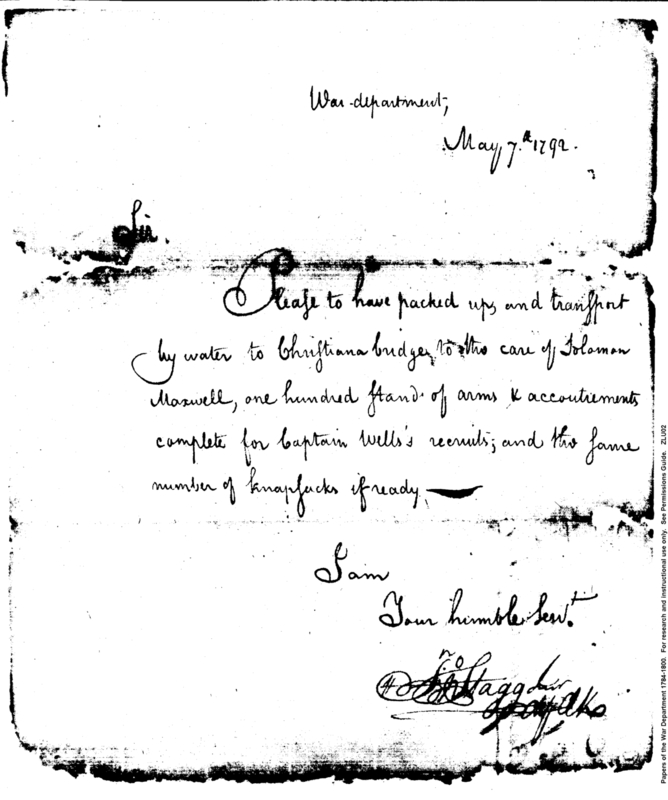 War-department,
May 7.th 1792.
Sir.
Please to have packed up, and transport
by water to Christiana bridge, to the care of Solomon
Maxwell, one hundred stand of arms & accoutrements
complete for Captain Wells's recruits; and the same
number of knapsacks if ready
I am
Your humble Servt.
Jno Stagg Junr
Papers of the War Department 1784-1800. For research and instructional use only. See Permissions Guide. ZLU02